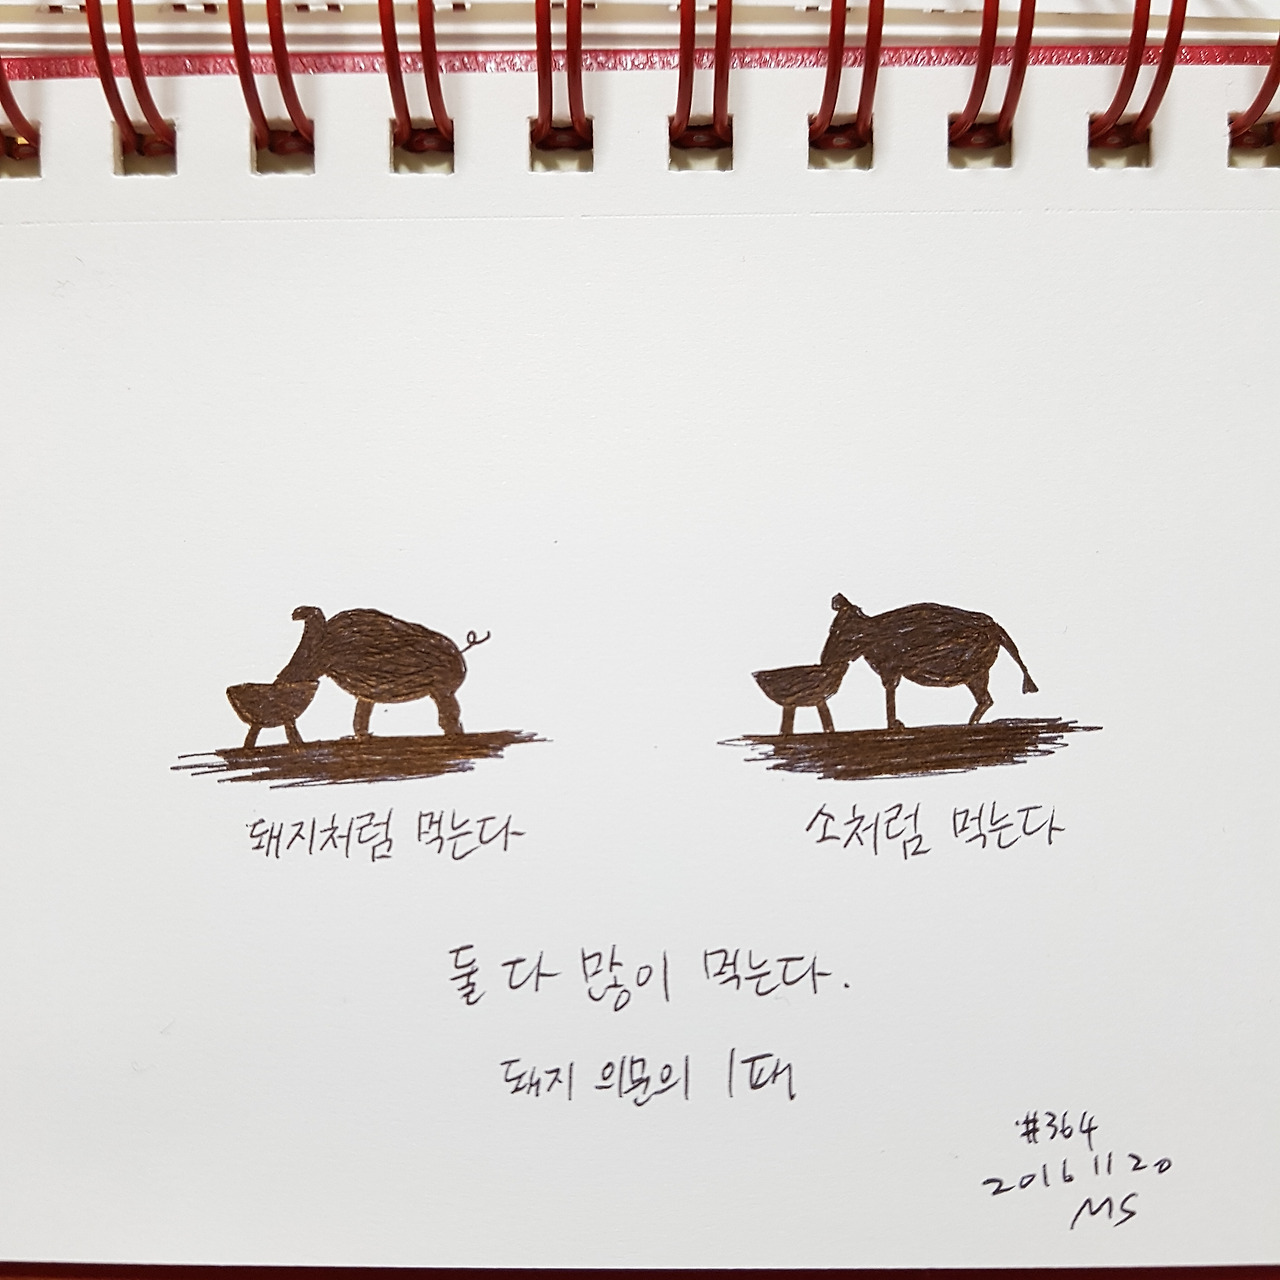 돼지처럼 먹는다
소처럼 먹는다
둘 다 많이 먹는다.
돼지 의문의 1패
#364
2016 11 20
MS